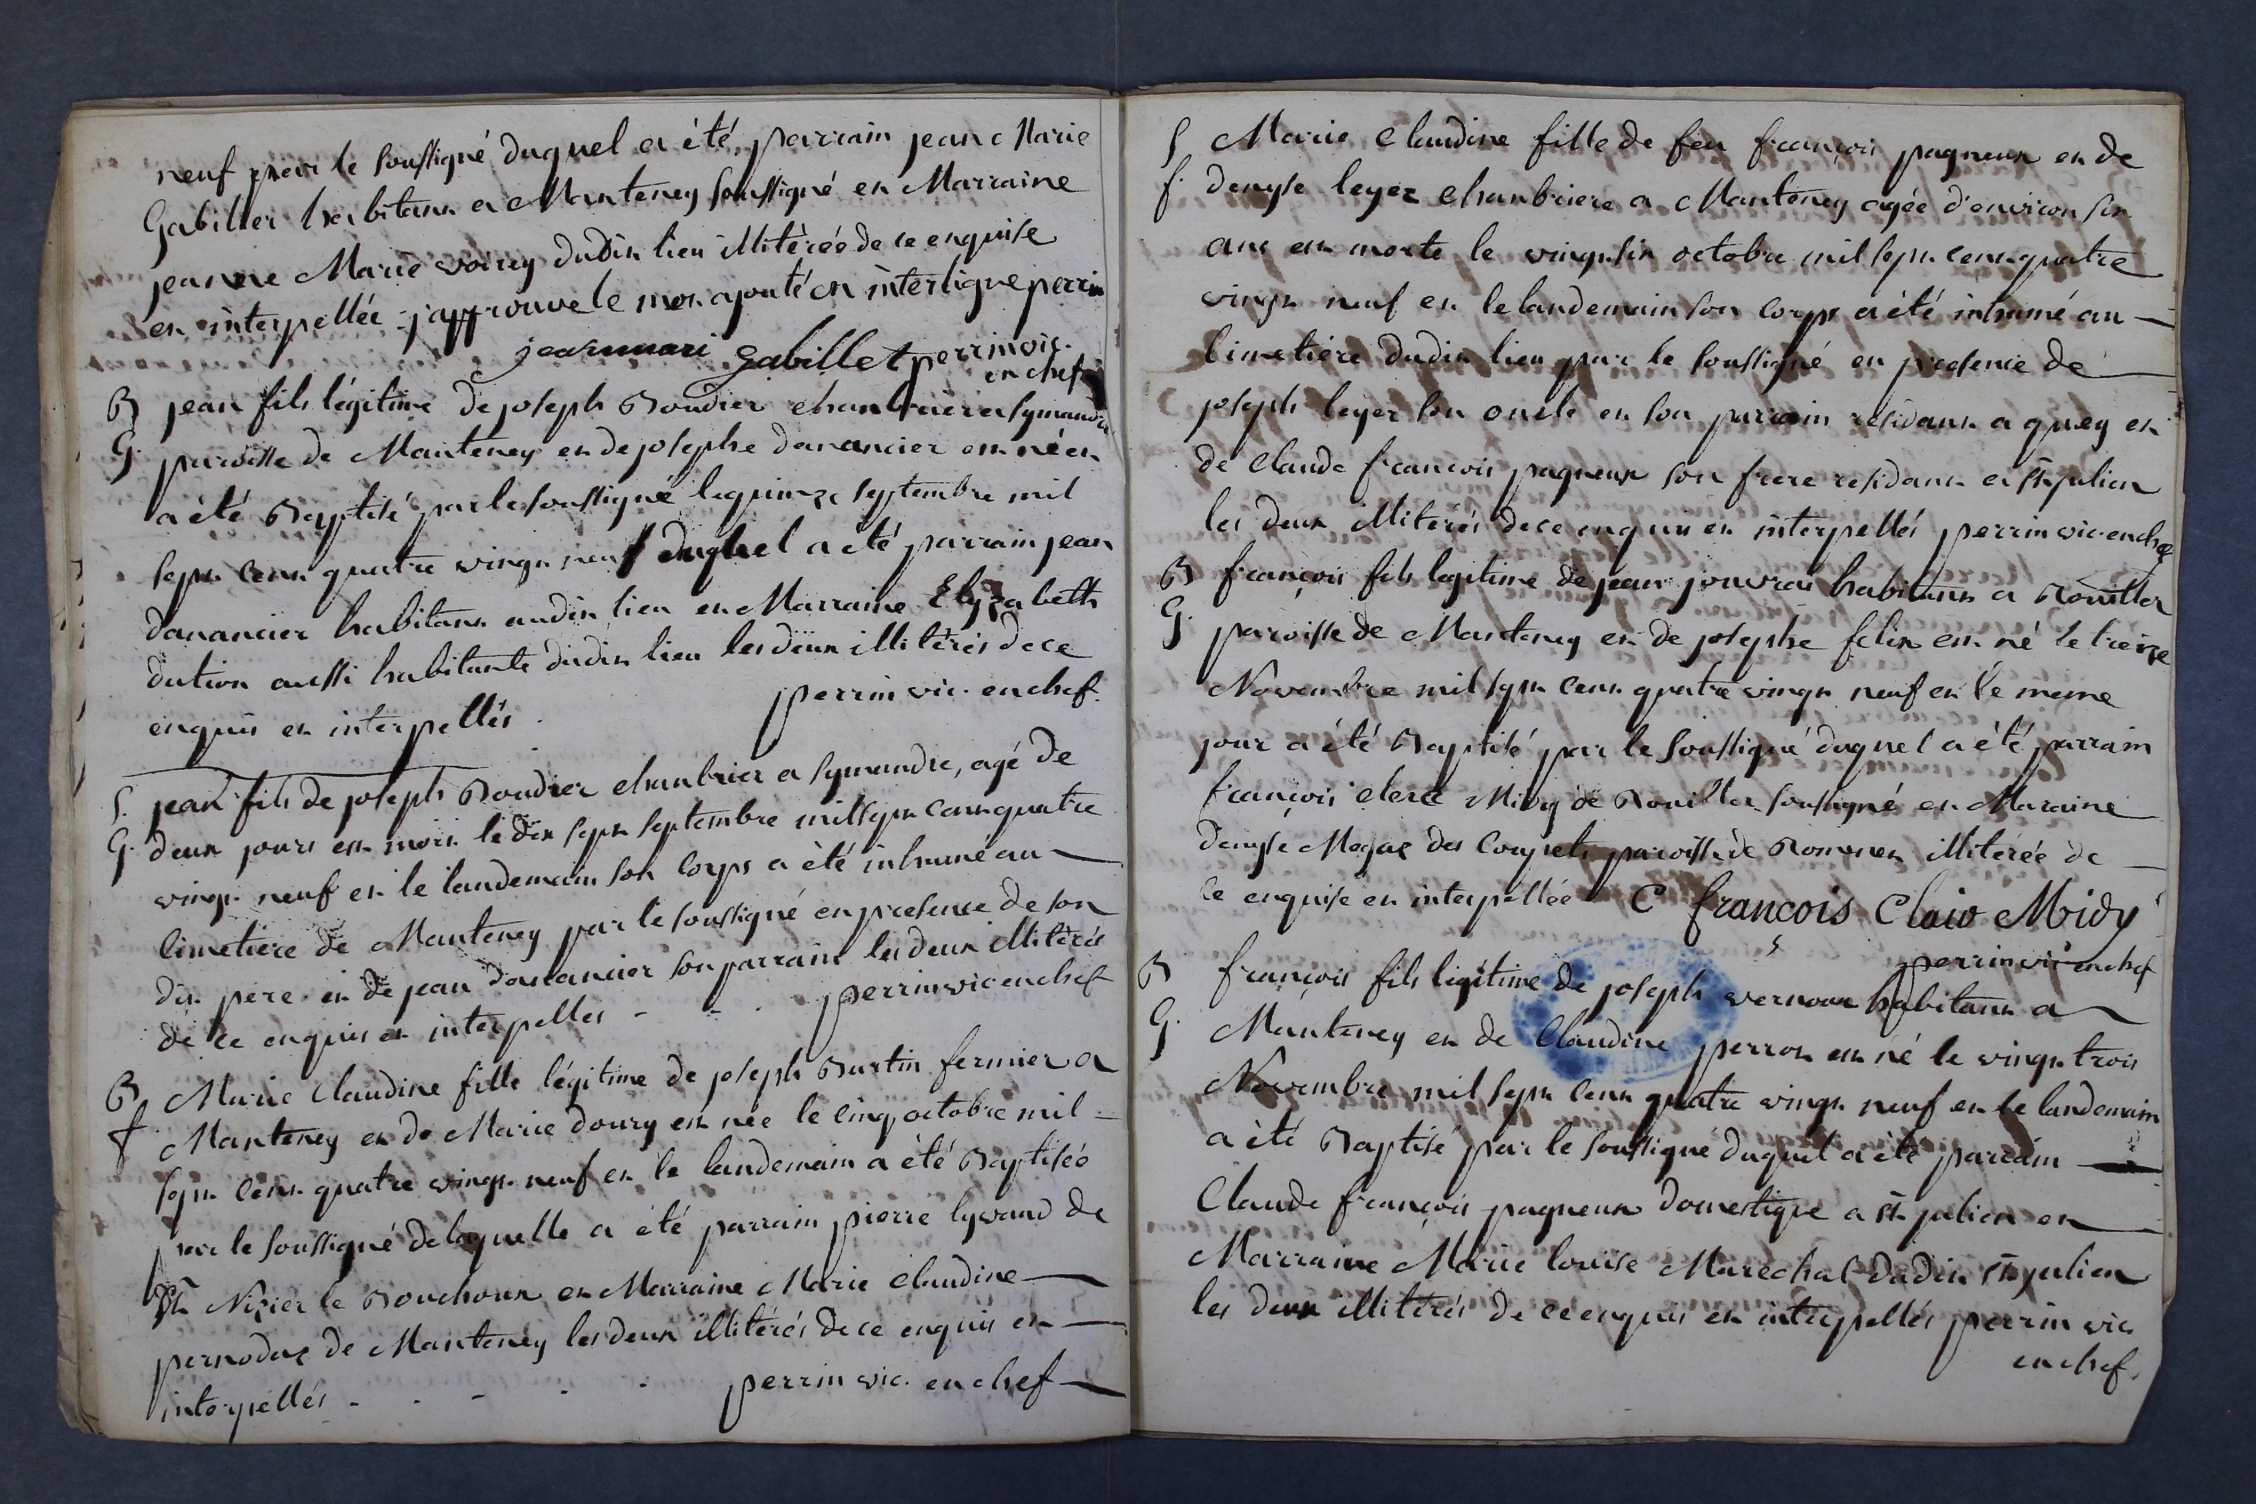 neuf par le soussigné duquel a été parrain jean Marie
Gabillet habitant a Manteney soussigné et Marraine
jeanne Marie voirey dudit lieu illitérée de ce enquise
et interpellée j'approuve le mot ajouté en interligne perrin
jeanmari gabillet perrin vic.
en chef
B jean fils légitime de joseph Boudier chanbrier a symandre
G. paroisse de Manteney et de josephe danancier est né et
a été Baptisé par le soussigné le quinze septembre mil
sept cent quatre vingt neuf duquel a été parrain jean
danancier habitant audit lieu et Marraine Elyzabeth
dution aussi habitante dudit lieu les deux illitérés de ce
enquis et interpellés. perrin vic. en chef.
S. jean fils de joseph Boudier chanbrier a symandre, agé de
G. deux jours est mort le dix sept septembre mil sept cent quatre
vingt neuf et le landemain son corps a été inhumé au
cimetiere de Manteney par le soussigné en presence de son
dit pere et de jean danancier son parrain les deux illitérés
de ce enquis et interpelles - - . perrin vic en chef
B Marie Claudine fille légitime de joseph Burtin fermier a
f. Manteney et de Marie doury est née le cinq octobre mil
sept cent quatre vingt neuf et le landemain a été Baptisée
par le soussigné de laquelle a été parrain pierre lyvaud de
St Nizier le Bouchoux et Marraine Marie claudine
pernodat de Manteney les deux illitérés de ce enquis et
interpellés - . - . . perrin vic. en chef
S Marie Claudine fille de feu françois pagneux et de
f. denyse leyer chanbriere a Manteney agée d'environ six
ans est morte le vingt six octobre mil sept cent quatre
vingt neuf et le landemain son corps a été inhumé au
cimetiére dudit lieu par le soussigné en presence de
joseph leyer son oncle et son parrain résidant a et
de Claude francois pagneux son frere residant a St julien
les deux illitérés de ce enquis et interpellés perrin vic. en chef
B françois fils legitime de jean jouvrai habitant a Rouiller
G. paroisse de Manteney et de josephe felix est né le treize
Novembre mil sept cent quatre vingt neuf et le meme
jour a été Baptisé par le soussigné duquel a été parrain
françois clerc Midy de Rouiller soussigné et Maraine
denyse des paroisse de Romenet illitérée de
ce enquise et interpellée C françois Claio Midy
perrin vic en chef
B françois fils legitime de joseph vernoux habitant a
G. Manteney et de Claudine perrot est né le vingt trois
Novembre mil sept cent quatre vingt neuf et le landemain
a été Baptisé par le soussigné duquel a été parrain
Claude françois pagneux domestique a St julien et
Marraine Marie louise Marechal dudit St julien
les deux illitérés de ce enquis et interpellés perrin vic
en chef.